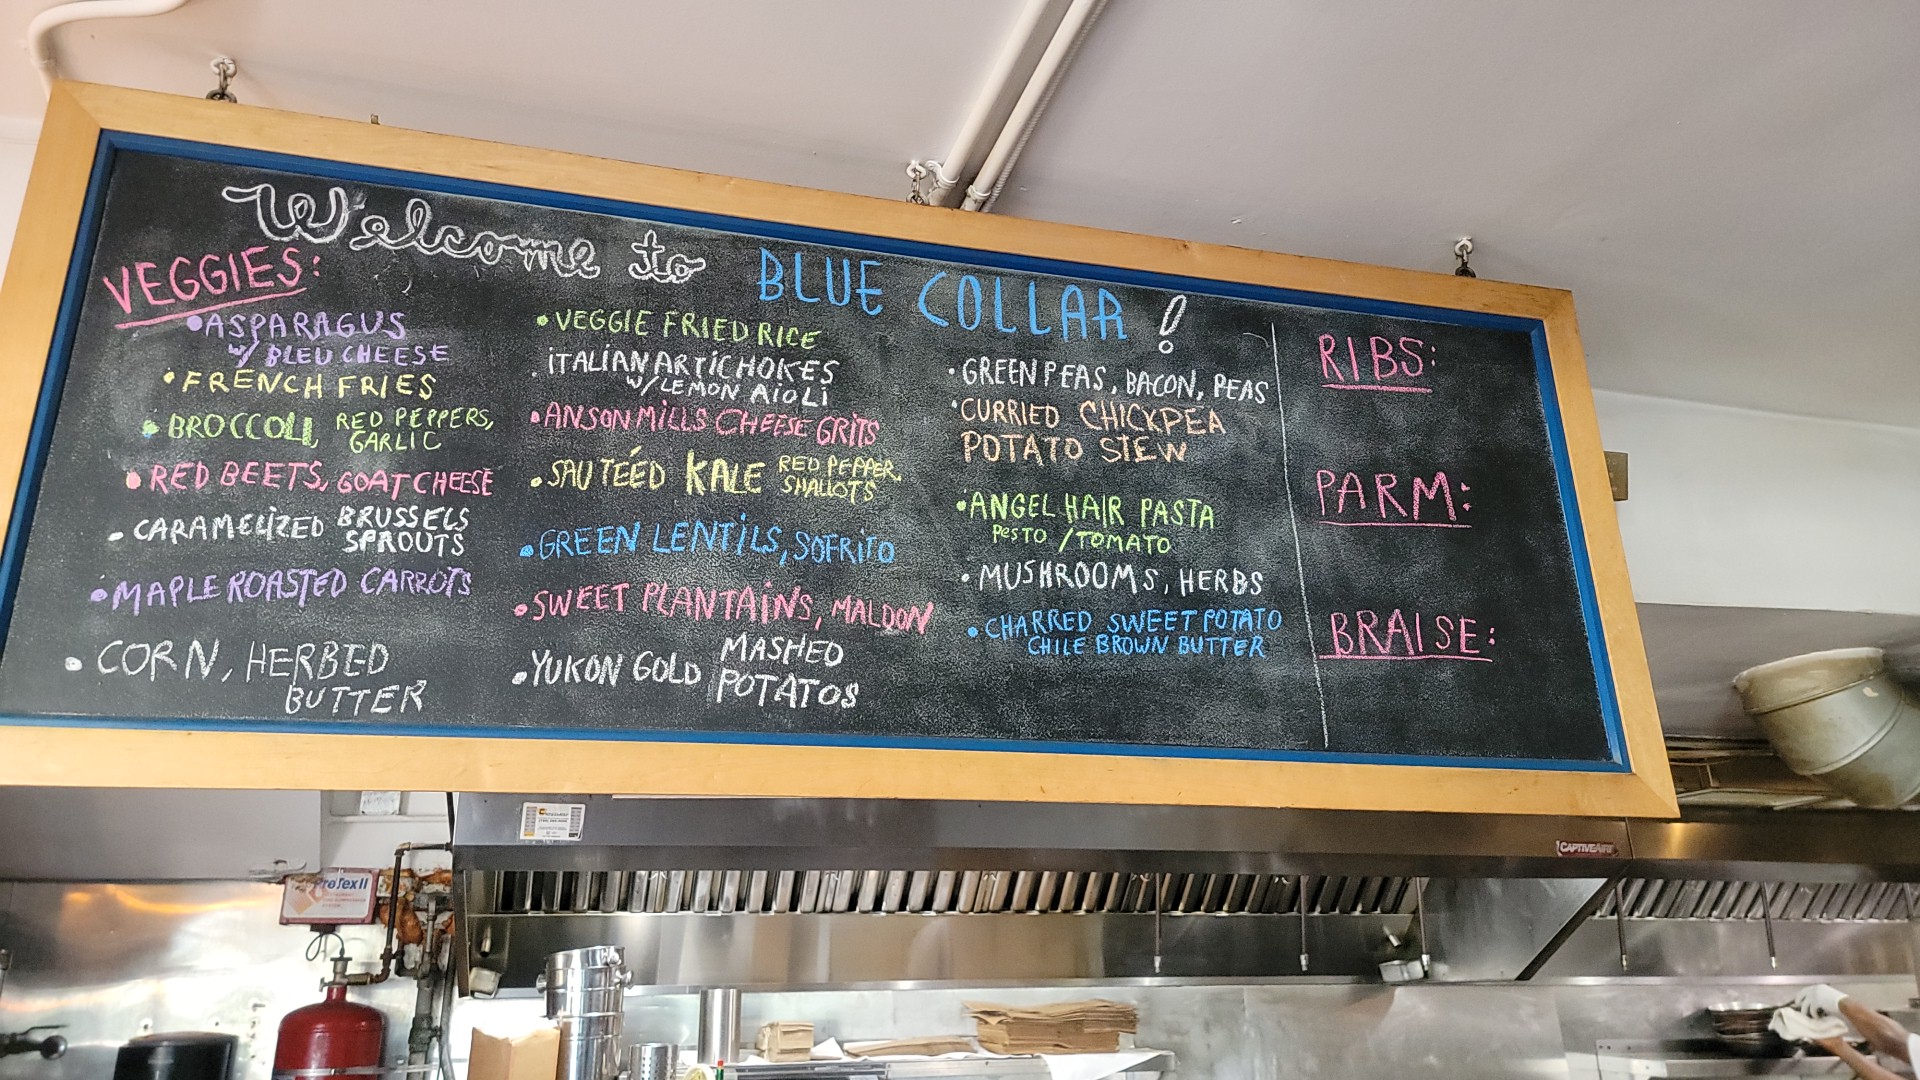 Welcome to BLUE COLLAR!
VEGGIES:
•ASPARAGUS
w/ BLEU CHEESE
•FRENCH FRIES
•BROCCOLI, RED PEPPERS,
GARLIC
•RED BEETS, GOAT CHEESE
•CARAMELIZED BRUSSELS
SPROUTS
•MAPLE ROASTED CARROTS
•CORN, HERBED
BUTTER
•VEGGIE FRIED RICE
•ITALIAN ARTICHOKES
w/ LEMON AIOLI
•ANSON MILLS CHEESE GRITS
•SAUTÉED KALE RED PEPPER,
SHALLOTS
•GREEN LENTILS, SOFRITO
•SWEET PLANTAINS, MALDON
•YUKON GOLD MASHED
POTATOS
•GREEN PEAS, BACON, PEAS
•CURRIED CHICKPEA
POTATO STEW
•ANGEL HAIR PASTA
PESTO / TOMATO
•MUSHROOMS, HERBS
•CHARRED SWEET POTATO
CHILE BROWN BUTTER
RIBS:
PARM:
BRAISE:
CAPTIVEAIRE
ProTex II